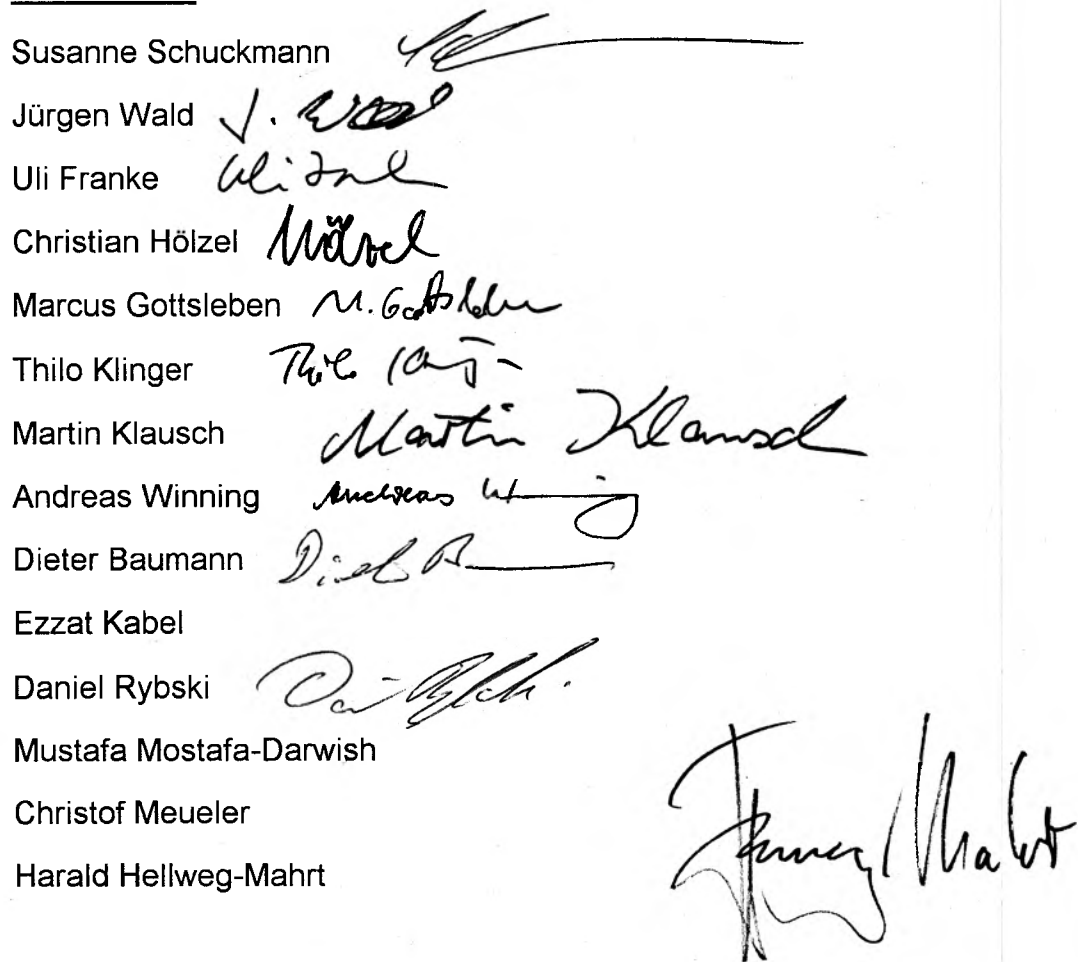 Susanne Schuckmann
Jürgen Wald J. Wald
Uli Franke Uli Frank
Christian Hölzel Hölzel
Marcus Gottsleben M. Gottsleben
Thilo Klinger Thilo
Martin Klausch Martin Klausch
Andreas Winning Andreas
Dieter Baumann
Ezzat Kabel
Daniel Rybski
Mustafa Mostafa-Darwish
Christof Meueler
Harald Hellweg-Mahrt Mahrt